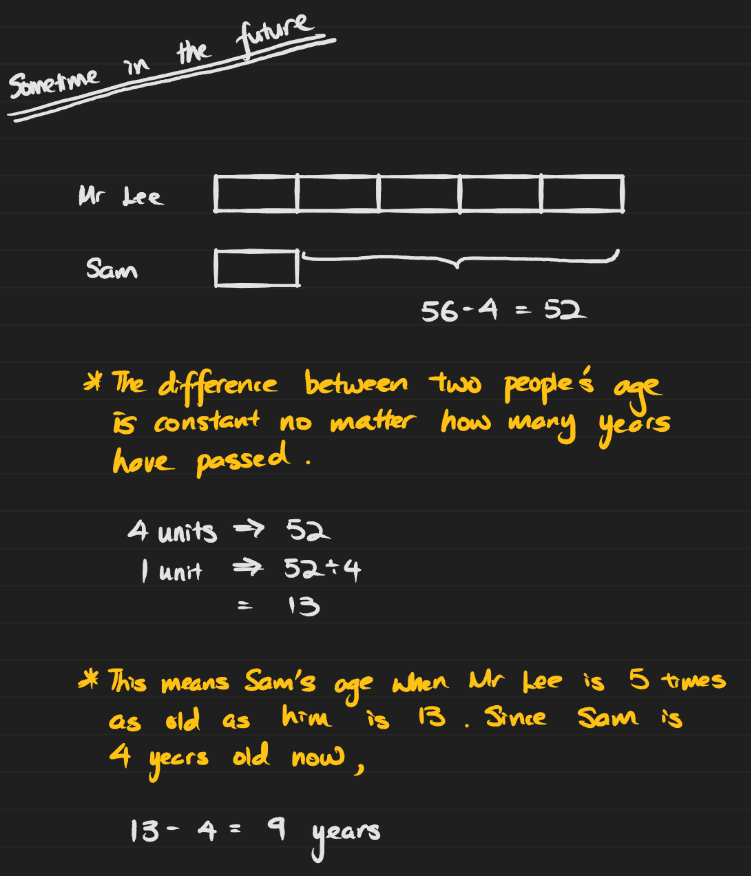 Sometime in the future
Mr Lee
Sam
56-4 = 52
* The difference between two people's age
is constant no matter how many years
have passed.
4 units ⇒ 52
1 unit ⇒ 52÷4
= 13
* This means Sam's age when Mr Lee is 5 times
as old as him is 13. Since Sam is
4 years old now,
13 - 4 = 9 years